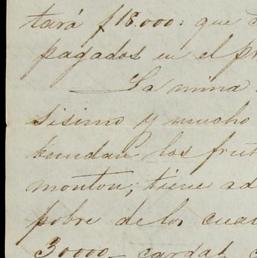 tará $18.000: que
pagados en el pr
La mina
sisimo y mucho
los frut
monton; tiene ad
pobre de los cua
30000